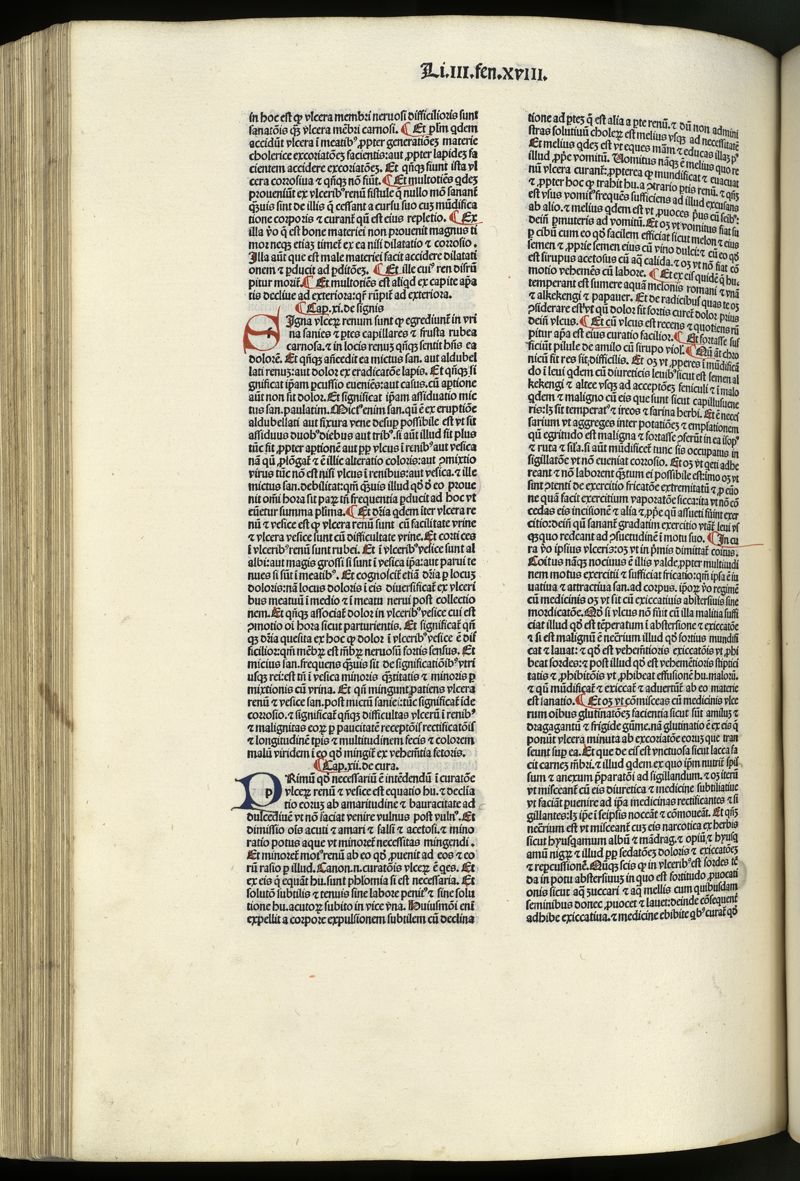 Li.III.fen.XVIII.
in hoc est qꝫ vlcera membri neruosi difficilioris sunt
sanatõis qꝫ vlcera mẽbri carnosi. ¶ Et plm qdem
accidũt vlcera ĩ meatibꝰ ꝓpter generationẽ materie
cholerice excoriatõeꝫ facientis: aut ꝓpter lapideꝫ fa
cientem accidere excoriatõeꝫ. Et qñqꝫ siunt ista vl
cera corrosiua ⁊ qñqꝫ nõ fiũt. ¶ Et multotiẽs qdeꝫ
proueniũt ex vlceribꝰ renũ fistule q̃ nullo mõ sanant̃
qꝫuis sint de illis q̃ cessant a cursu suo cuꝫ mũdifica
tione corporis ⁊ curant̃ qñ est eius repletio. ¶ Ex
illa ṽo q̃ est bone materiei non prouenit magnus ti
mor neqꝫ etiaꝫ timet̃ ex ea nisi dilatatio ⁊ corrosio.
Illa aũt que est male materiei facit accidere dilatati
onem ⁊ ꝑducit ad ꝑditõeꝫ. ¶ Et ille cuiꝰ ren disrũ
pitur morit̃. ¶ Et multotiẽs est aliqd ex capite apa
tis decliue ad exteriora: qr̃ rũpit̃ ad exteriora.
¶ Cap.xi. de signis
SIgna vlceꝝ renum sunt qꝫ egrediunt̃ in vri
na sanies ⁊ ptes capillares ⁊ frusta rubea
carnosa. ⁊ in locis renuꝫ qñqꝫ sentit hñs ea
dolorẽ. Et qñqꝫ añcedit ea mictus san. aut aldubel
lati renuꝫ: aut dolor ex eradicatõe lapis. Et qñqꝫ si
gnificat ip̃am ꝑcussio eueniẽs: aut casus. cũ aptione
aũt non sit dolor. Et significat ip̃am assiduatio mic
tus san. paulatim. Mictꝰ enim san. qũ ẽ ex eruptiõe
aldubellati aut fixura vene desup possibile est vt sit
assiduus duobꝰ diebus aut tribꝰ. si aũt illud sit plus
tũc sit ꝓpter aptionẽ aut ꝓp vlcus ĩ renibꝰ aut vesica
nã qũ ꝓlõgat̃ ⁊ ẽ illic alteratio coloris: aut ꝯmixtio
virus tũc nõ est nisi vlcus ĩ renibus: aut vesica. ⁊ ille
mictus san. debilitat: qm̃ qꝫuis illud qd̃ ð eo proue
nit om̃i hora sit paꝝ tñ frequentia ꝑducit ad hoc vt
eũetur summa plĩma. ¶ Et dr̃ia qdem iter vlcera re
nũ ⁊ vesice est qꝫ vlcera renũ sunt cũ facilitate vrine
⁊ vlcera vesice sunt cũ difficultate vrine. Et corti ces
ĩ vlceribꝰ renũ sunt rubei. Et ĩ vlceribꝰ vesice sunt al
albi: aut magis grossi si sunt ĩ vesica ip̃a: aut parui te
nues si sũt ĩ meatibꝰ. Et cognoscit̃ etiã dr̃ia ꝑ locuꝫ
doloris: nã locus doloris ĩ eis diuersificat̃ ex vlceri
bus meatuũ ĩ medio ⁊ ĩ meatu nerui post collectio
nem. Et qñqꝫ associat̃ dolor in vlceribꝰ vesice cui est
ꝯmotio oi hora sicut parturientis. Et significat̃ qñ
qꝫ dr̃ia quesita ex hoc qꝫ dolor ĩ vlceribꝰ vesice ẽ dif
ficilior: qm̃ mẽbꝝ est mẽbꝝ neruosũ fortis sensus. Et
micius san. frequens qꝫuis sit de significatiõibꝰ vtri
usqꝫ rei: est tñ ĩ vesica minoris qꝫtitatis ⁊ minoris ꝑ
mixtionis cũ vrina. Et qñ mingunt̃ patiens vlcera
renũ ⁊ vesice san. post mictũ saniei: tũc significat̃ ide
corrosio. ⁊ significat̃ qñqꝫ difficultas vlcerũ ĩ renibꝰ
⁊ malignitas eoꝝ ꝑ paucitatẽ receptõis rectificatõis
⁊ longitudinẽ tꝑis ⁊ multitudinem fecis ⁊ colorem
malũ viridem ĩ eo qð mingit̃ ex vehemẽtia fetoris.
¶ Cap.xii. de cura.
PRimũ qð necessariũ ẽ intẽdendũ ĩ curatõe
vlceꝝ renũ ⁊ vesice est equatio hu. ⁊ declia
tio eoruꝫ ab amaritudine ⁊ bauracitate ad
dulcediuẽ vt nõ faciat venire vulnus post vulnꝰ. Et
dimissio ois acuti ⁊ amari ⁊ falsi ⁊ acetosi. ⁊ mino
ratio potus aque vt minoret̃ necessitas mingendi.
Et minoret̃ motꝰ renũ ab eo qð ꝓuenit ad eos ⁊ eo
rũ rasio ꝑ illud. Canon. n. curatõis vlceꝝ ẽ qes. Et
ex eis q̃ equãt hu. sunt phlomia si est necessaria. Et
solutõ subtilis ⁊ tenuis sine labore penitꝰ ⁊ sine solu
tione hu. acutoꝝ subito in vice vna. Huiusmõi eni̇̃
expellit a corpore expulsionem subtilem cũ declina
tione ad ptes q̃ est alia a pte renũ. ⁊ dũ non admini
stras solutiuũ choleꝝ est melius vsqꝫ ad necessitatẽ
Et melius qdeꝫ est vt eques mãm ⁊ educas illaꝫ pꝰ
illud ꝓpe vomitũ. Uomitus nãqꝫ ẽ melius quo re
nũ vlcera curant̃: ꝓpterea qꝫ mundificat ⁊ euacuat
⁊ ꝓpter hoc qꝫ trabit hu. a ꝯtrario ptis renũ. ⁊ qñqꝫ
est vsus vomitꝰ frequẽs sufficiens ad illud excusans
ab alio. ⁊ melius qdem est vt ꝓuoces pꝰus eũ seibꝰ:
dein̄ ꝑmuteris ad vomitũ. Et oꝫ vt vomitus fiat su
ꝑ cibũ cum eo qð facilem efficiat sicut melon ⁊ eius
semen ⁊ ꝓprie semen eius cũ vino dulci: ⁊ cũ eo qð
est sirupus acetosus cũ aq̃ calida. ⁊ oꝫ vt nõ fiat cõ
motio vehemẽs cũ labore. ¶ Et ex eis quidẽ q̃ hu.
temperant est sumere aquã melonis romani ⁊ vnũ
⁊ alkekengi ⁊ papauer. Et de radicibus quas te oꝫ
ꝯsiderare est vt qñ dolor sit fortis curet̃ dolor prius
dein̄ vlcus. ¶ Et cũ vlcus est recens ⁊ quotiens rũ
pitur apa est eius curatio facilior. ¶ Et fortasse suf
ficiũt pilule de amilo cũ sirupo violꝰ. ¶ Qñ aũt chro
nicũ sit res sit difficilis. Et oꝫ vt ꝓperes ĩ mũdificã
do ĩ leui qdem cũ diureticis leuibꝰ sicut est semen al
kekengi ⁊ altee vsqꝫ ad acceptõeꝫ feniculi ⁊ ĩ malo
qdem ⁊ maligno cũ eis que sunt sicut capillus vene
ris: lꝫ sit temperatꝰ ⁊ ireos ⁊ farina herbi. Et ẽ neces
sarium vt aggreges inter potatiõeꝫ ⁊ emplastationem
qñ egritudo est maligna ⁊ fortasse ꝯferũt in ea isopꝰ
⁊ ruta ⁊ sila. si aũt mũdificet̃ tunc sis occupatus in
sigillatõe vt nõ eueniat corrosio. Et oꝫ vt qeti adhe
reant ⁊ nõ laborent qꝫtum ei possibile est: imo oꝫ vt
sint ꝯtenti de exercitio fricatõe extremitatũ ⁊ ꝓ euo
ne quã facit exercitium vaporatõe sicca: ita vt nõ cõ
cedas eis incisionẽ ⁊ alia ⁊ ꝓpẽ qñ assueti fũint exer
citio: dein̄ qñ sanant̃ gradatim exercitio vtãt̃ leui vs
qꝫ quo redeant ad ꝯsuetudinẽ ĩ motu suo. ¶ In cu
ra ṽo ipsius vlceris: oꝫ vt in pꝰmis dimittat̃ coitus.
Coitus nãqꝫ nociuus ẽ illis valde. ꝓpter multitudi
nem motus exercitii ⁊ sufficiat fricatio: qm̃ ip̃a ẽ iu
uatiua ⁊ attractiua san. ad corpus. ip̃oꝝ ṽo regimẽ
cũ medicinis oꝫ vt sit cũ exiccatiuis abstersiuis sine
mordicatõe. Qð si vlcus nõ fũt cũ illa malitia suffi
ciat illud qð est tẽperatum ĩ abstersione ⁊ exiccatõe
⁊ si est malignũ ẽ neccrĩum illud qð fortius mundifi
cat ⁊ lauat: ⁊ qð est vehemẽtis exiccatõis vt ꝓhi
beat sordes: ⁊ post illud qð est vehemẽtioris stiptici
tatis ⁊ ꝓhibitõis vt ꝓhibeat effusionẽ hu. malorũ.
⁊ qñ mũdificat̃ ⁊ exiccat̃ ⁊ aduertũt̃ ab eo materie
est sanatio. ¶ Et oꝫ vt cõmisceas cũ medicinis vlce
rum oĩbus glutinatõeꝫ facientia sicut sũt amiluꝫ ⁊
dragagantũ ⁊ frigide gũme. nã glutinatio ẽ ex eis q̃
ponũt vlcera minuta ab excoriatõe eoruꝫ que tran
seunt sup ea. Et que de eis est vnctuosa sicut lacca fa
cit carneꝫ mẽbri. ⁊ illud qdem ex quo ip̃m nutrit̃ spil
sum ⁊ anexum ꝑparatõi ad sigillandum. ⁊ oꝫ iterũ
vt misceant̃ cũ eis diuretica ⁊ medicine subtiliatiue
vt faciãt ꝑuenire ad ip̃a medicinas rectificantes ⁊ si
gillantes: lꝫ ip̃e ĩ seipsis noceãt ⁊ cõmoueãt. Et qñqꝫ
necrĩum est vt misceant̃ cuꝫ eis narcotica ex herbis
sicut hyusqamum albũ ⁊ mãdrag. ⁊ opiũ ⁊ hyusq
amũ nigꝝ ⁊ illud ꝓp sedatõeꝫ doloris ⁊ exiccatõeꝫ
⁊ repcussionẽ. Qñqꝫ scis qꝫ in vlceribꝰ est sordes tẽ
da in potu abstersiuuꝫ in quo est fortitudo ꝓuocati
onis sicut aqꝫ zuccari ⁊ aq̃ mellis cum quibusdam
seminibus donec ꝓuocet ⁊ lauet: deinde cõsequent̃
adhibe exiccatiua. ⁊ medicine ebibite qbꝰ curat̃ qð